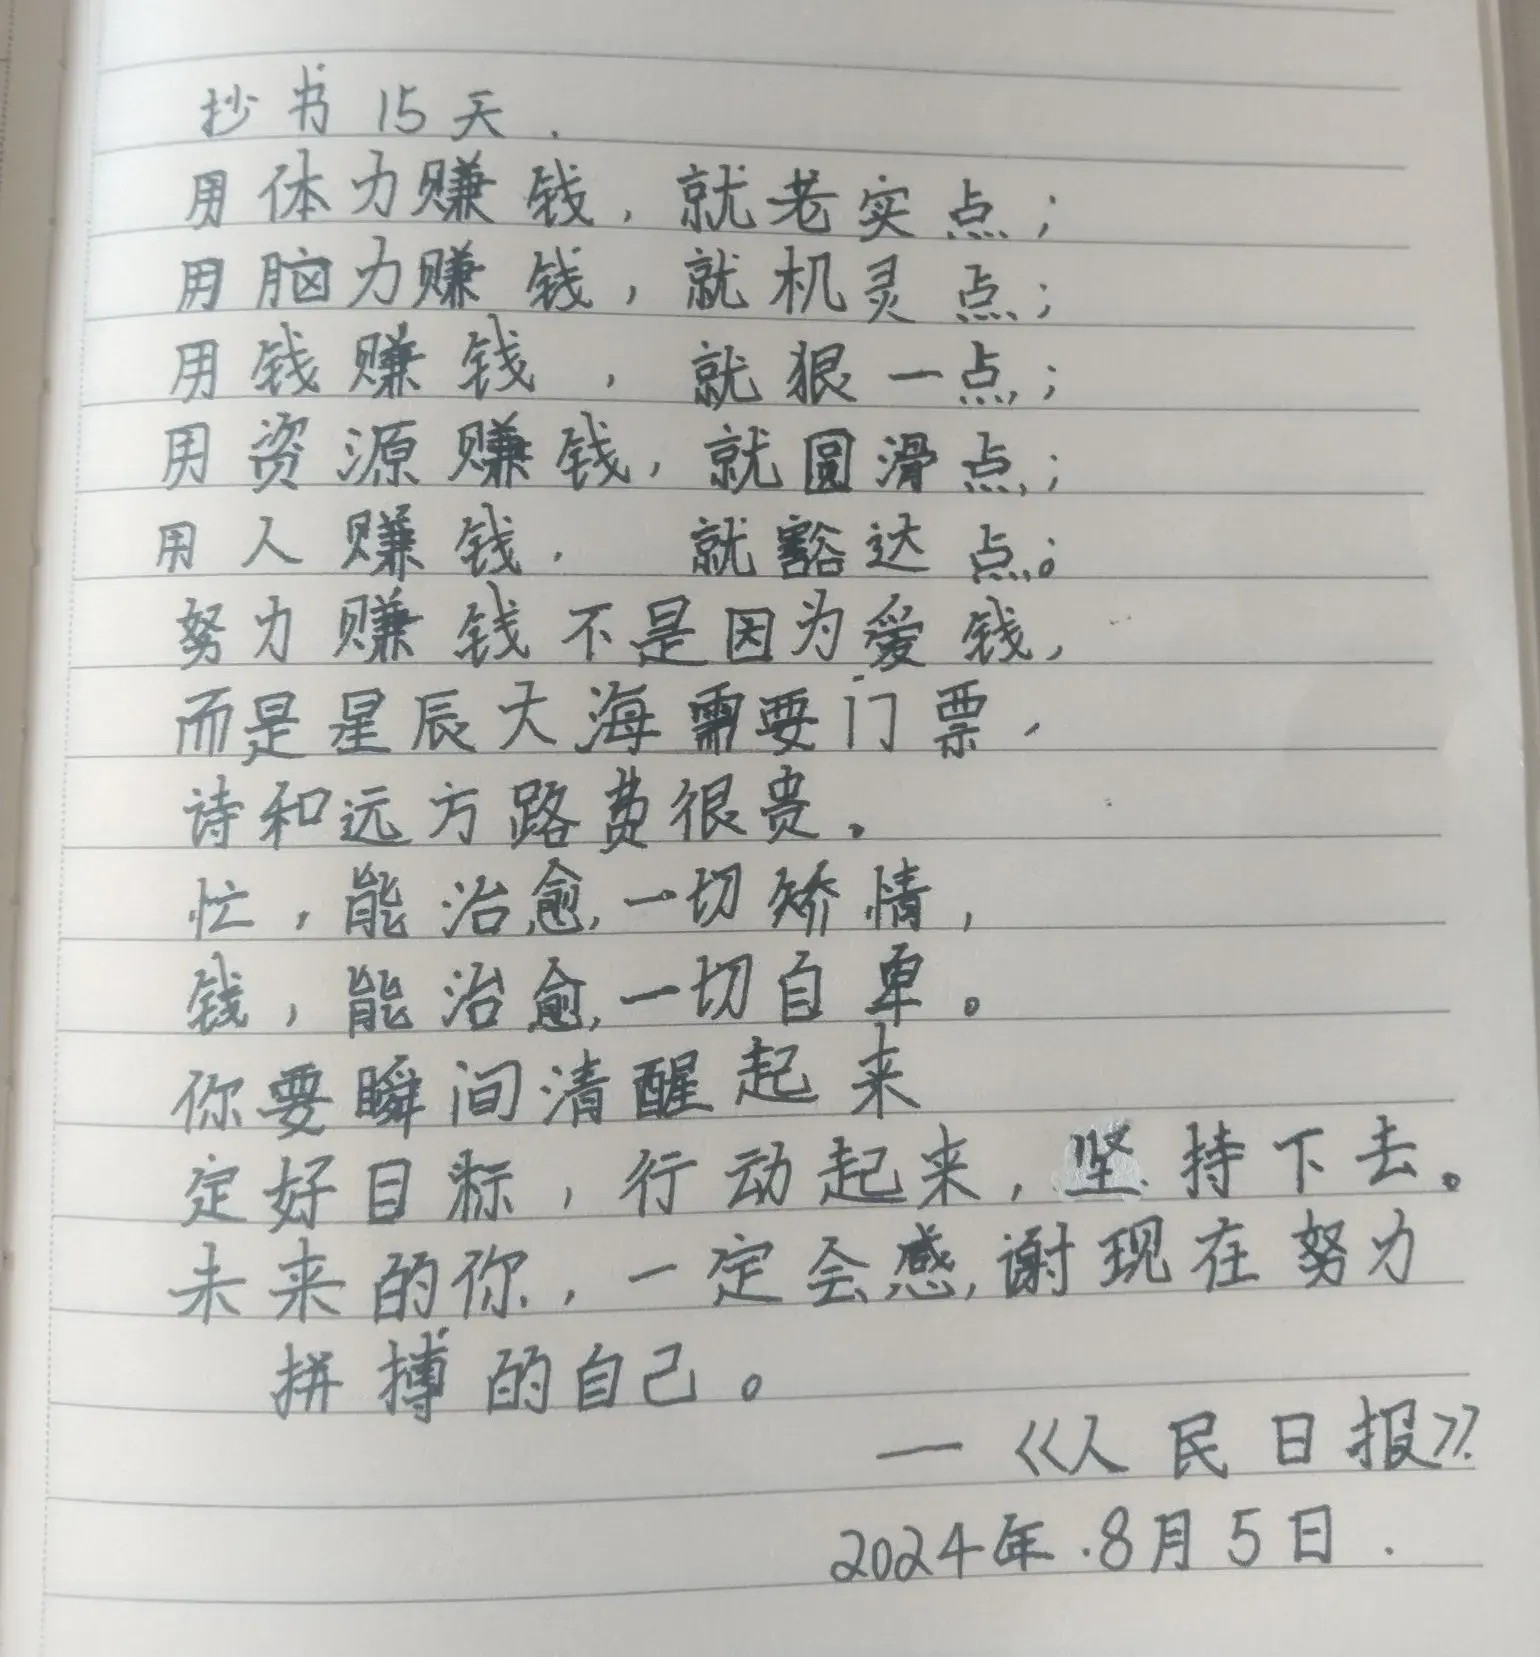 抄书15天.
用体力赚钱，就老实点；
用脑力赚钱，就机灵点；
用钱赚钱，就狠一点；
用资源赚钱，就圆滑点；
用人赚钱.就豁达点。
努力赚钱不是因为爱钱，
而是星辰大海需要门票，
诗和远方路费很贵。
忙，能治愈一切矫情，
钱，能治愈一切自卑。
你要瞬间清醒起来
定好目标，行动起来，坚持下去。
未来的你，一定会感谢现在努力
拼搏的自己。
—《人民日报》
2024年.8月5日.